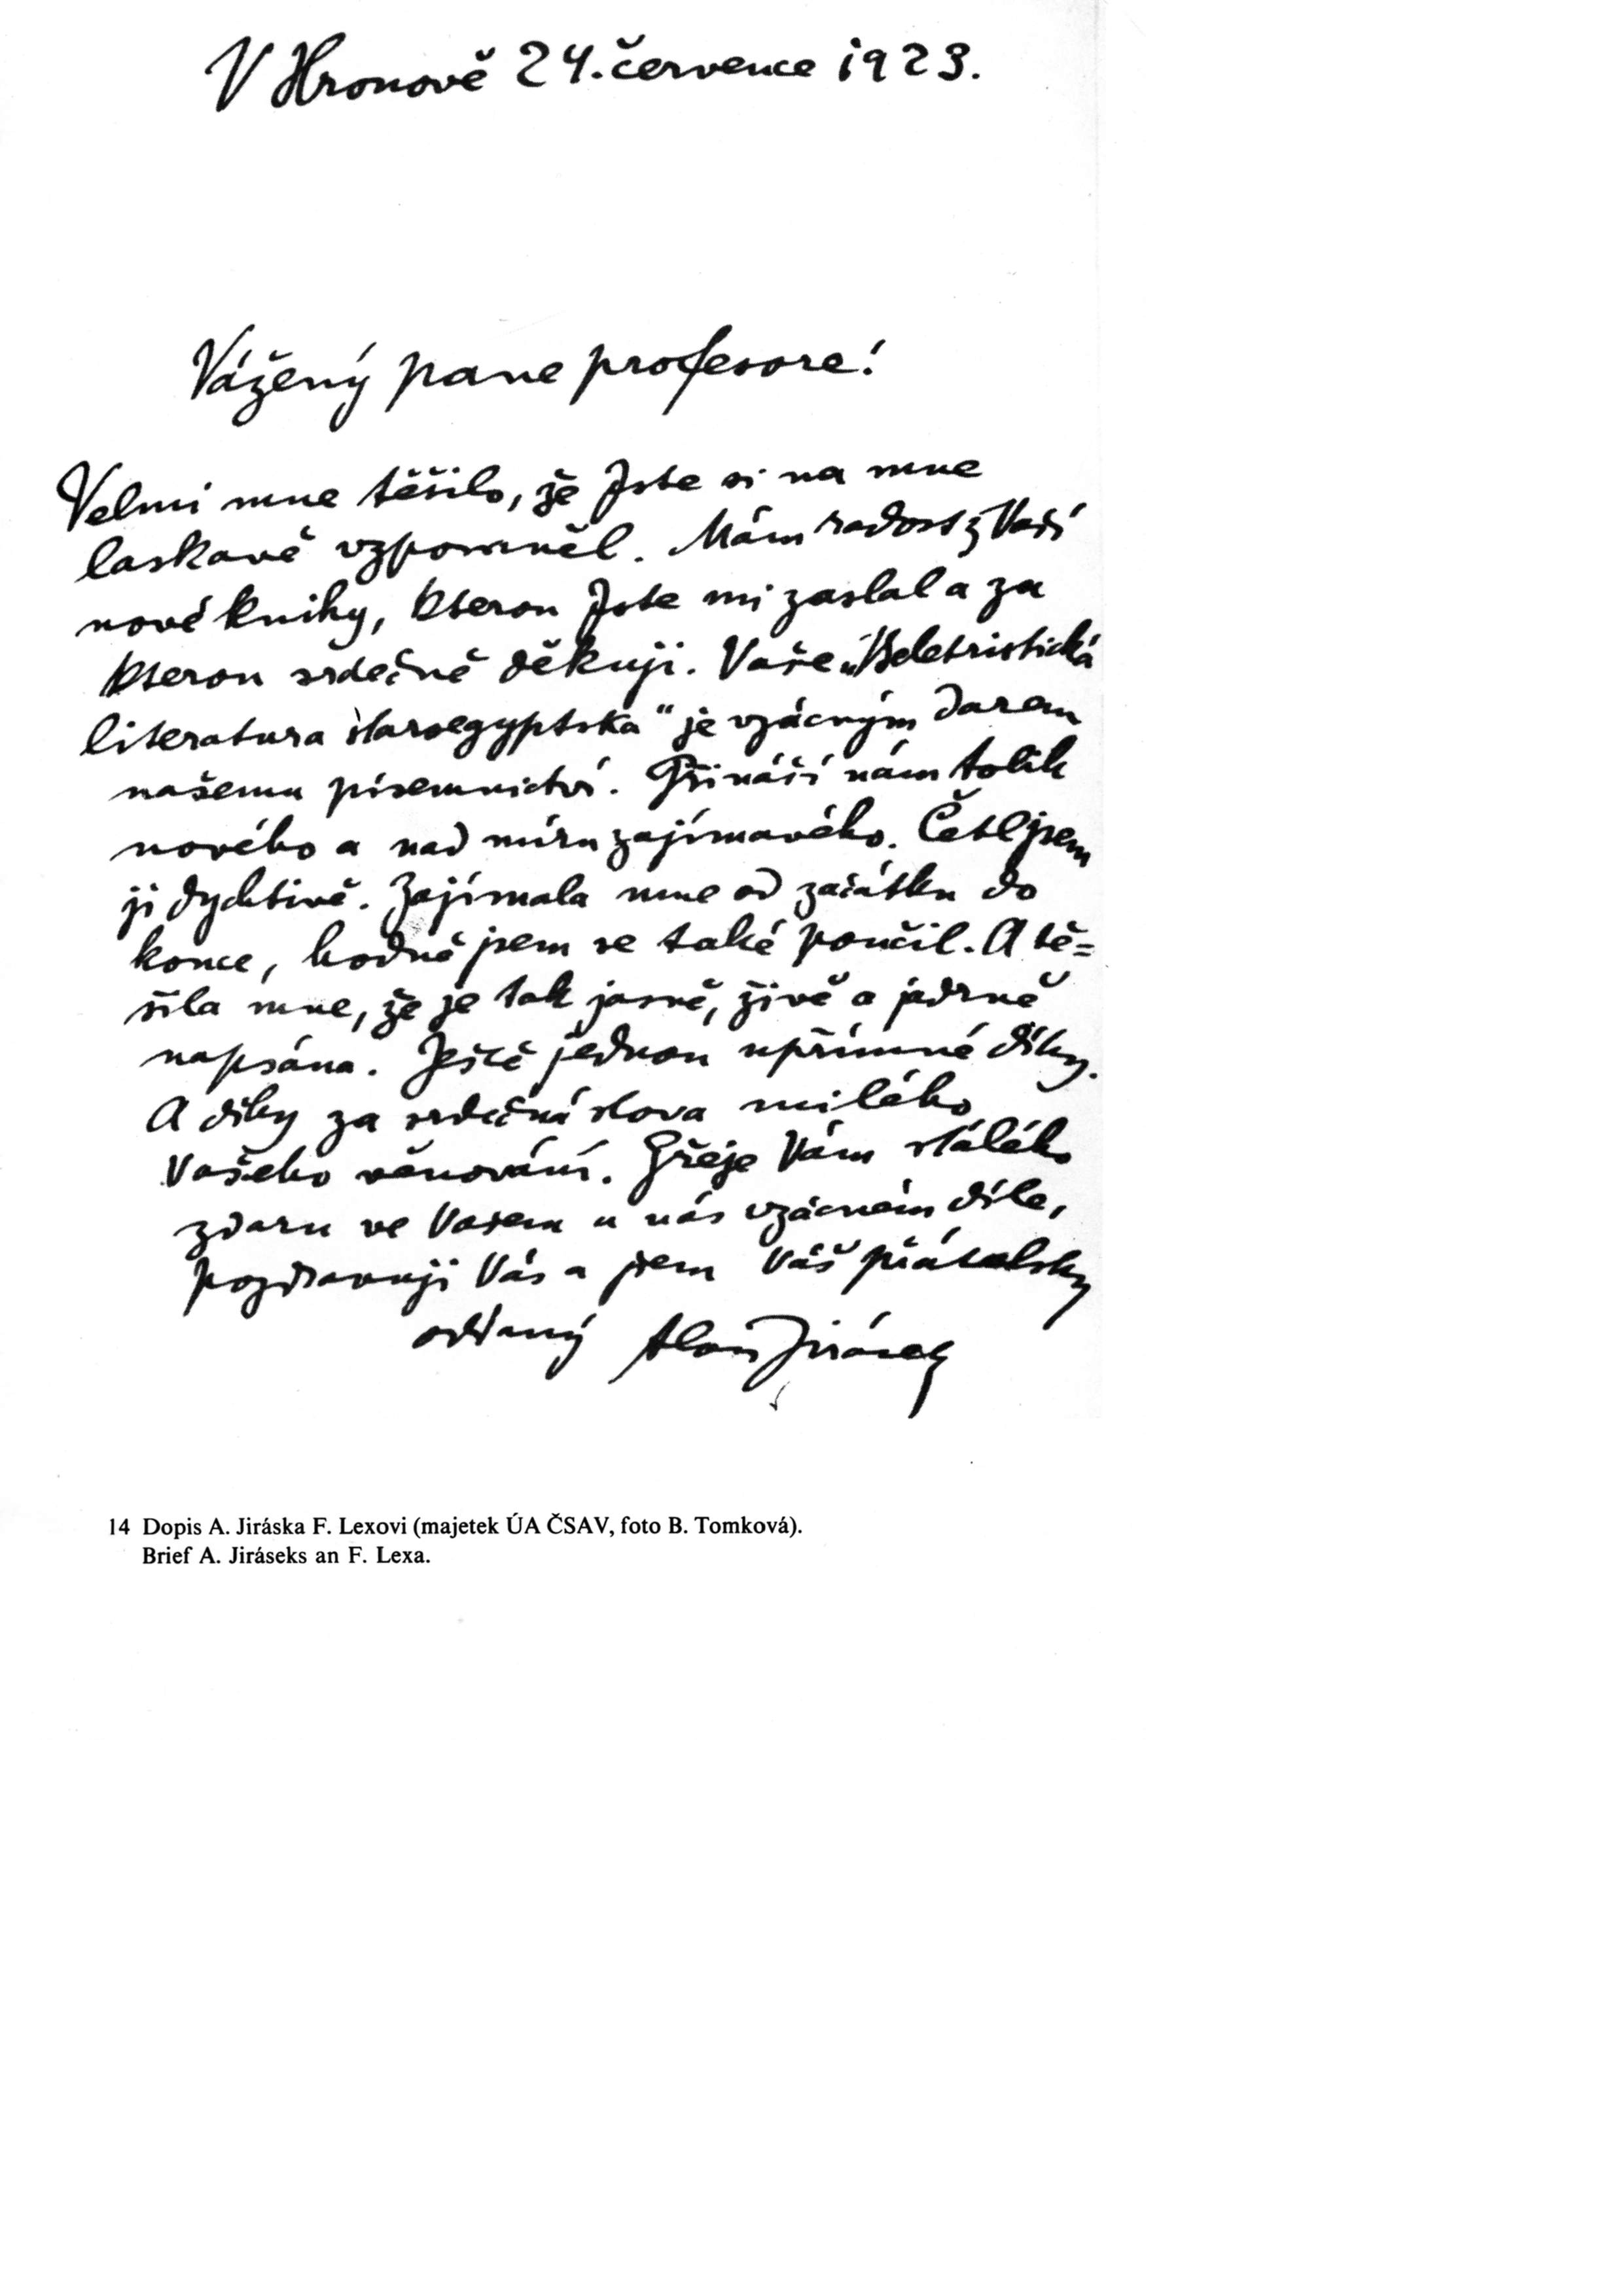 V Hronově 24. července 1923.
Vážený pane profesore!
Velmi mne těšilo, že Jste si na mne
laskavě vzpomněl. Mám radost z Vaší
nové knihy, kterou Jste mi zaslal a za
kterou srdečně děkuji. Vaše „Beletristická
literatura staroegyptská“ je vzácným darem
našemu písemnictví. Přináší nám tolik
nového a nad míru zajímavého. Četl jsem
ji dychtivě. Zajímala mne od začátku do
konce, hodně jsem se také poučil. A tě=
šila mne, že je tak jasně, živě a jadrně
napsána. Ještě jednou upřímné díky.
A díky za srdečná slova milého
Vašeho věnování. Přeje Vám stálého
zdaru ve Vašem u nás vzácném díle,
pozdravuji Vás a jsem Váš přátelsky
oddaný Alois Jirásek
14 Dopis A. Jiráska F. Lexovi (majetek ÚA ČSAV, foto B. Tomková).
Brief A. Jiráseks an F. Lexa.